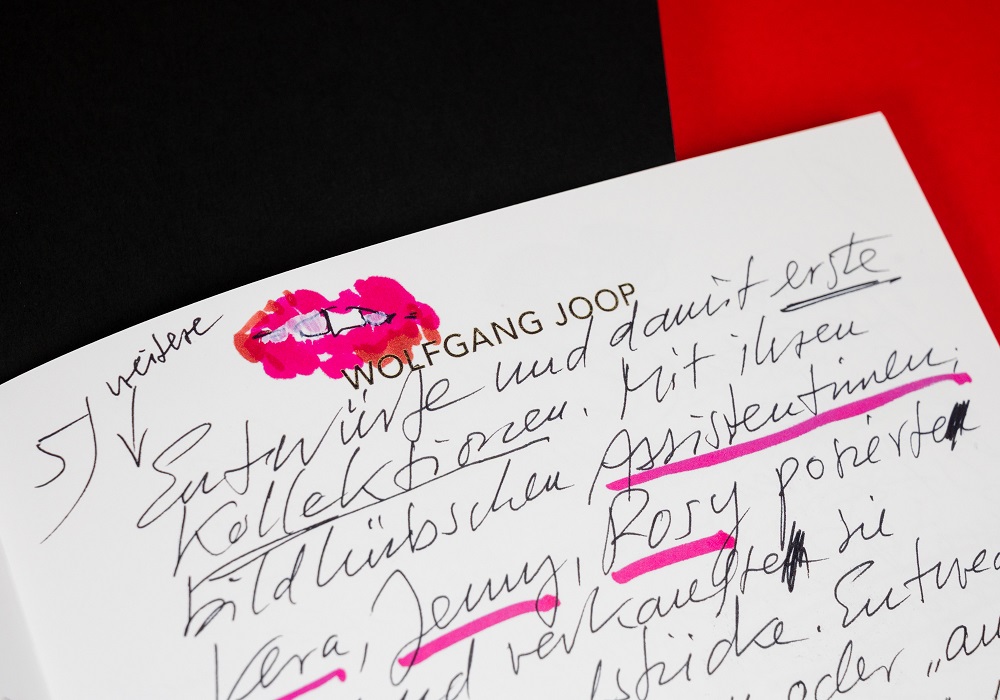 WOLFGANG JOOP
weitere
5) Entwürfe und damit erste
Kollektionen. Mit ihren
bildhübschen Assistentinnen,
Vera, Jenny, Rosy posierte
und verkaufte sie
stücke. Entwed
oder „au